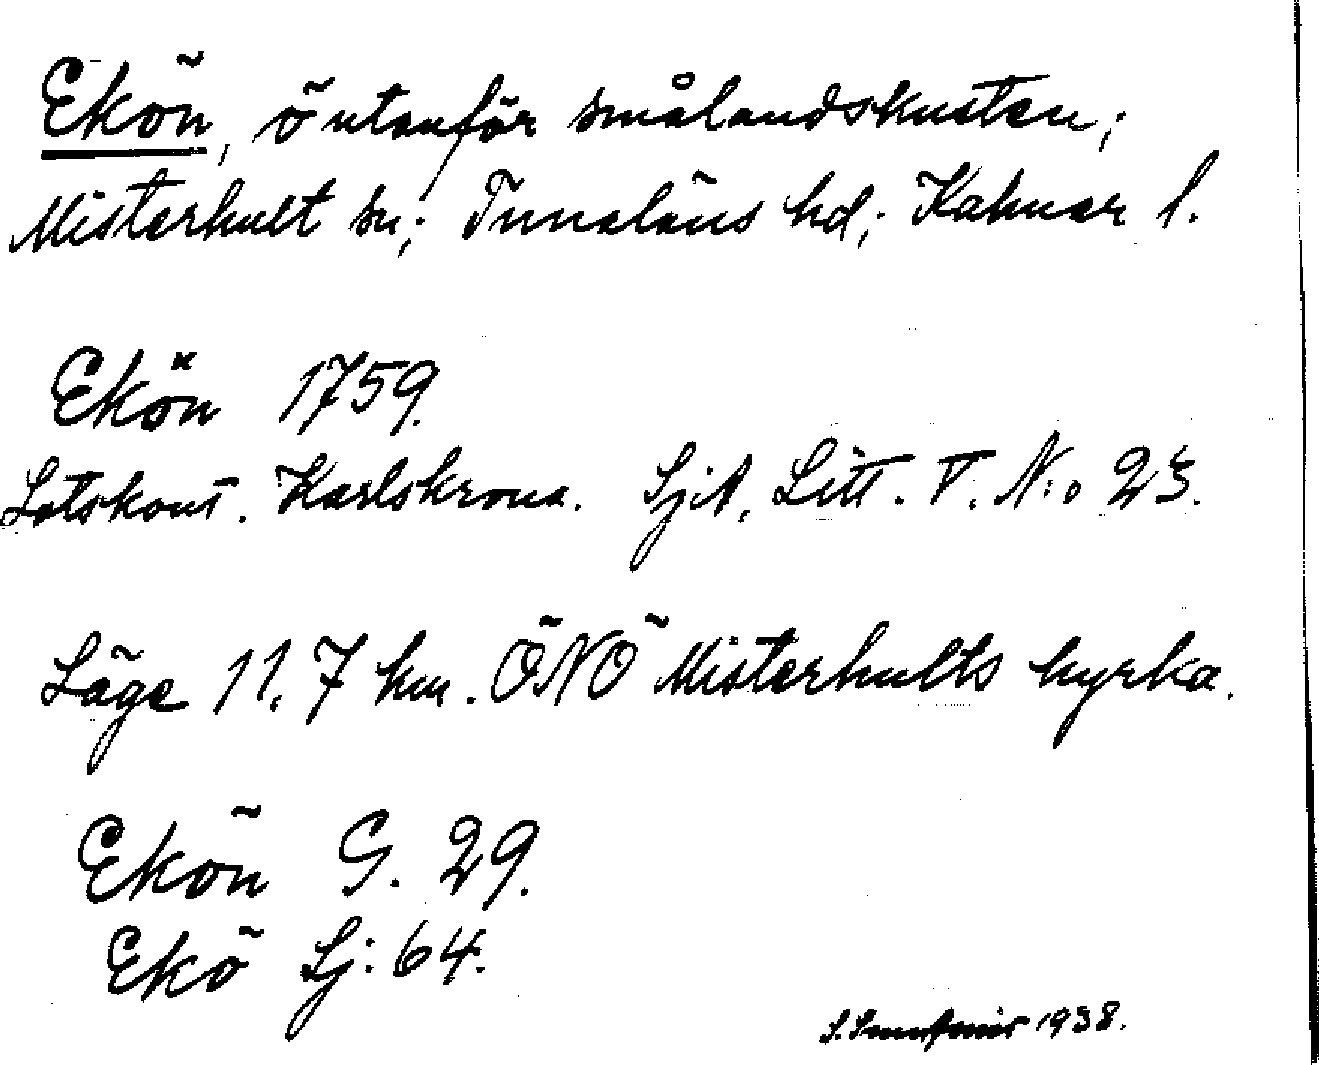 Ekön, ö utanför smålandskusten;
Misterhult sn; Tunaläns hd; Kalmar l.
Ekön 1759.
Lotskont. Karlskrona. SjA, Litt. T. N:o 23.
Läge 11,7 km. ÖNÖ Misterhults kyrka.
Ekön G. 29.
Ekö Sj: 64.
S. 1938.